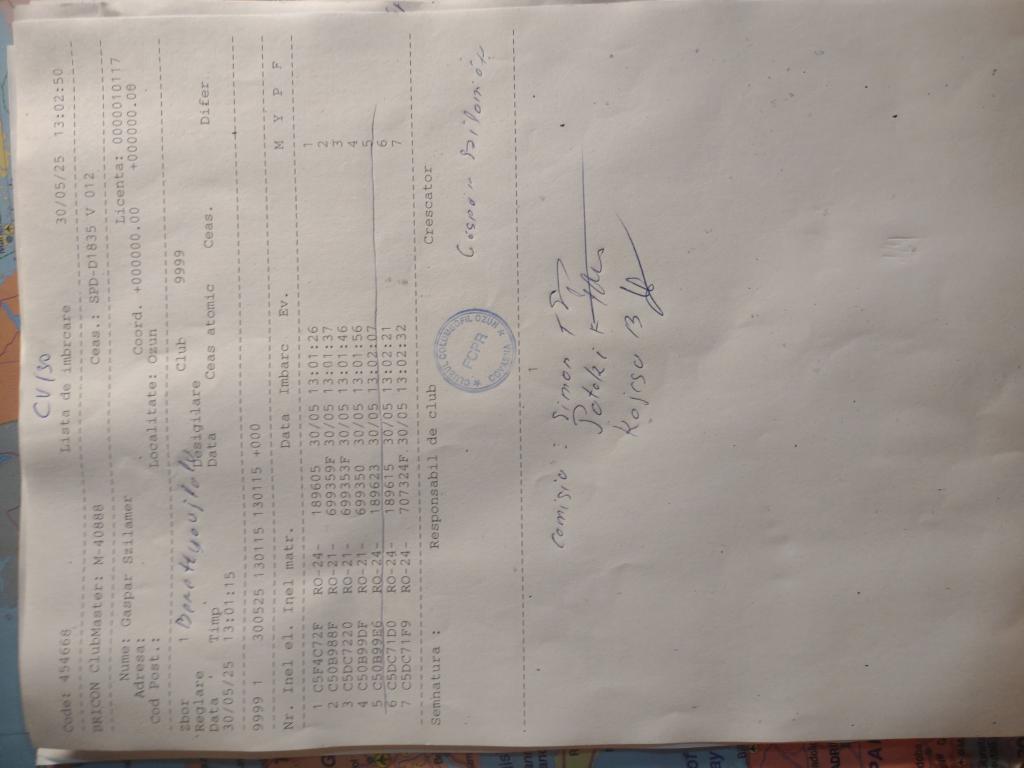 CV/30
Code: 454668 Lista de imbrcare 30/05/25 13:02:50
BRICON ClubMaster: M-40888 Ceas.: SPD-D1835 V 012
Nume: Gaspar Szilamer Licenta: 0000010117
Adresa: Coord. +000000.00 +000000.00
Cod Post.: Localitate: Ozun
Zbor 1 Club 9999
Reglare Desigilare
Data Timp Data Ceas atomic Ceas. Difer
30/05/25 13:01:15
9999 1 300525 130115 130115 +000
Nr. Inel el. Inel matr. Data Imbarc Ev. M Y P F
1 C5F4C72F RO-24- 189605 30/05 13:01:26 1
2 C50B988F RO-21- 699359F 30/05 13:01:37 2
3 C5DC7220 RO-21- 699353F 30/05 13:01:46 3
4 C50B99DF RO-21- 699350 30/05 13:01:56 4
5 C50B99E6 RO-24- 189623 30/05 13:02:07 5
6 C5DC71D0 RO-24- 189615 30/05 13:02:21 6
7 C5DC71F9 RO-24- 707324F 30/05 13:02:32 7
Semnatura : Responsabil de club Crescator
CLUBUL COLUMBOFIL OZUN
FCPR
COVASNA
1
comisia : Simon
Potoki